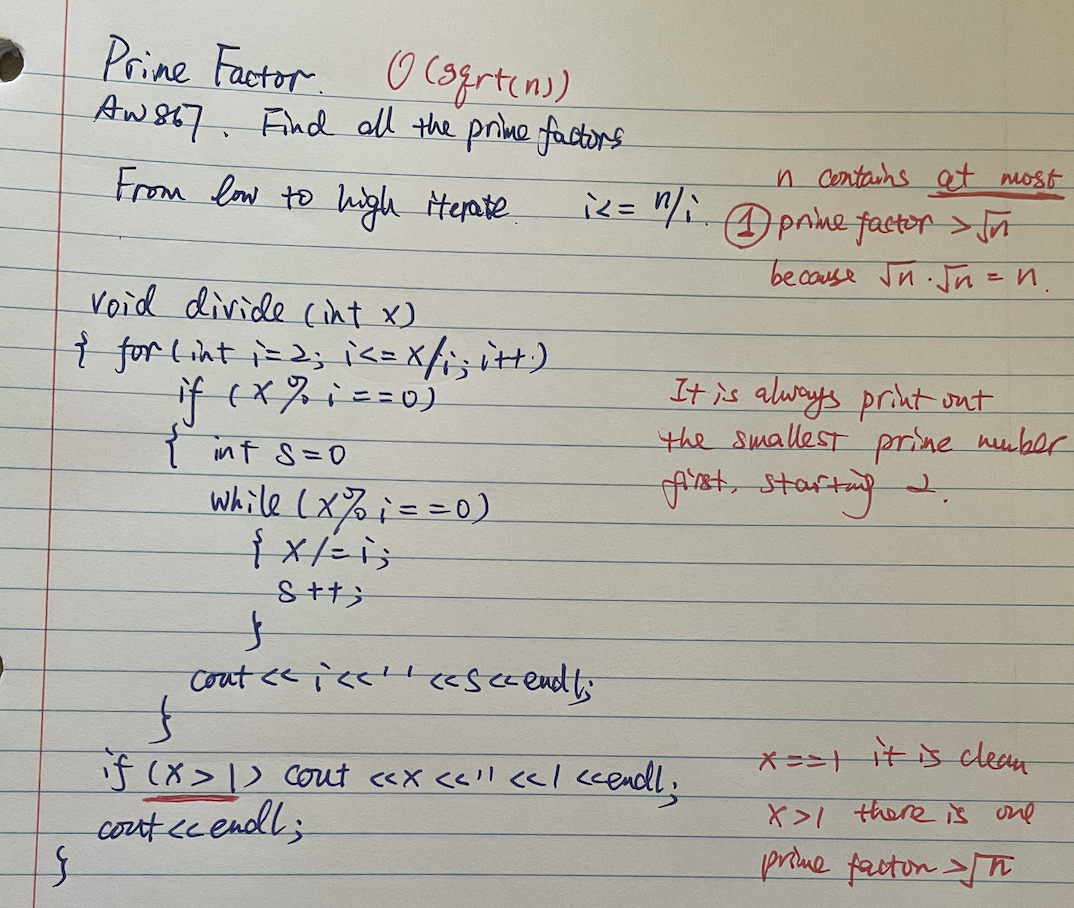 Prine Factor. O(sqrt(n))
AW 867. Find all the prime factors
From low to high iterate. i<= n/i.
n contains at most
① prime factor > √n
because √n · √n = n.
void divide (int x)
{ for (int i=2; i<= x/i; i++)
if (x % i ==0)
{ int s=0
while (x% i ==0)
{ x/=i;
s++;
}
cout << i <<' ' <<s<<endl;
}
if (x>1) cout <<x <<'' <<1 <<endl;
cout<<endl;
}
It is always print out
the smallest prime number
first, starting 2.
x==1 it is clean
x>1 there is one
prime factor >√n